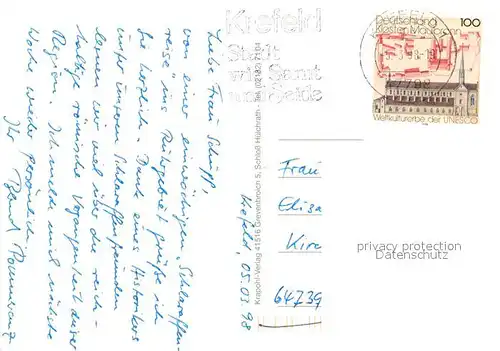 Krefeld, 05.03.98
Liebe Frau Schipp,
von einer einwöchigen "Schlaraffen-
reise" ins Ruhrgebiet grüße ich
Sie herzlich. Dank eines Historikers
unter unseren Schlaraffenfreunden
lernen wir viel über die reich-
haltige römische Vergangenheit dieser
Region. Ich melde mich nächste
Woche wieder persönlich.
Ihr
Krapohl-Verlag 41516 Grevenbroich 5, Schloß Hülchrath - Tel. (02182) 7104
Krefeld
Stadt
wie Samt
und Seide
Deutschland 100
Kloster Maulbronn
Weltkulturerbe der UNESCO
Frau
Elisa
Kirc
64739
privacy protection
Datenschutz